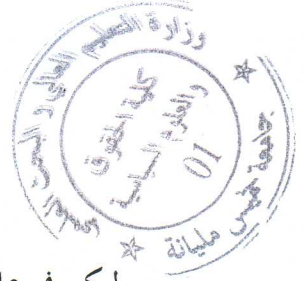 وزارة التعليم العالي و البحث العلمي
جامعة خميس مليانة
كلية الحقوق
و العلوم السياسية
01